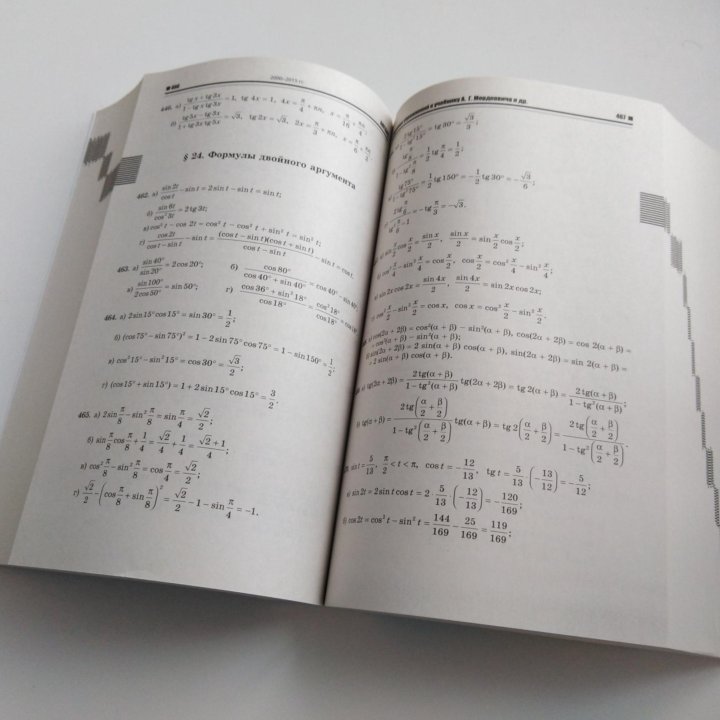 466
2000–2015 гг.
446. а) (tg x + tg 3x)/(1 − tg x tg 3x) = 1, tg 4x = 1, 4x = π/4 + πn, x = π/16 + πn/4;
б) (tg 5x − tg 3x)/(1 + tg 3x tg 5x) = √3, tg 2x = √3, 2x = π/3 + πn, x = π/6 + πn/2
§ 24. Формулы двойного аргумента
462. а) sin 2t/cos t − sin t = 2 sin t − sin t = sin t;
б) sin 6t/cos² 3t = 2 tg 3t;
в) cos² t − cos 2t = cos² t − cos² t + sin² t = sin² t;
г) cos 2t/(cos t − sin t) − sin t = (cos t − sin t)(cos t + sin t)/(cos t − sin t) − sin t = cos t.
463. а) sin 40°/sin 20° = 2 cos 20°; б) cos 80°/(cos 40° + sin 40°) = cos 40° − sin 40°;
в) sin 100°/(2 cos 50°) = sin 50°; г) (cos 36° + sin² 18°)/cos 18° = cos² 18°/cos 18° = cos 18°
464. а) 2 sin 15° cos 15° = sin 30° = 1/2;
б) (cos 75° − sin 75°)² = 1 − 2 sin 75° cos 75° = 1 − sin 150° = 1/2;
в) cos² 15° − sin² 15° = cos 30° = √3/2;
г) (cos 15° + sin 15°) = 1 + 2 sin 15° cos 15° = 3/2.
465. а) 2 sin π/8 − sin² π/8 = sin π/4 = √2/2;
б) sin π/8 cos π/8 + 1/4 = √2/4 + 1/4 = (√2 + 1)/4;
в) cos² π/8 − sin² π/8 = cos π/4 = √2/2;
г) √2/2 − (cos π/8 + sin π/8)² = √2/2 − 1 − sin π/4 = −1.
к учебнику А. Г. Мордковича и др.
467
= tg 30° = √3/3;
= 1/2 tg π/4 = 1/2;
1/2 tg 150° = −1/2 tg 30° = −√3/6;
= −tg π/3 = −√3.
sin x/2 cos x/2 = sin x/2, sin x/2 = sin x/2 cos x/2;
cos² x/4 − sin² x/4 = cos x/2, cos x/2 = cos² x/4 − sin² x/4;
sin 2x cos 2x = sin 4x/2, sin 4x/2 = sin 2x cos 2x;
cos² x/2 − sin² x/2 = cos x, cos x = cos² x/2 − sin² x/2.
cos(2α + 2β) = cos²(α + β) − sin²(α + β), cos(2α + 2β) = cos 2(α + β) =
= cos²(α + β) − sin²(α + β);
sin(2α + 2β) = 2 sin(α + β) cos(α + β), sin(2α + 2β) = sin 2(α + β) =
= 2 sin(α + β) cos(α + β).
а) tg(2α + 2β) = 2 tg(α + β)/(1 − tg²(α + β)) tg(2α + 2β) = tg 2(α + β) = 2 tg(α + β)/(1 − tg²(α + β));
б) tg(α + β) = 2 tg(α/2 + β/2)/(1 − tg²(α/2 + β/2)) tg(α + β) = tg 2(α/2 + β/2) = 2 tg(α/2 + β/2)/(1 − tg²(α/2 + β/2)).
sin t = 5/13, π/2 < t < π, cos t = −12/13, tg t = 5/13 · (−13/12) = −5/12;
а) sin 2t = 2 sin t cos t = 2 · 5/13 · (−12/13) = −120/169;
б) cos 2t = cos² t − sin² t = 144/169 − 25/169 = 119/169;